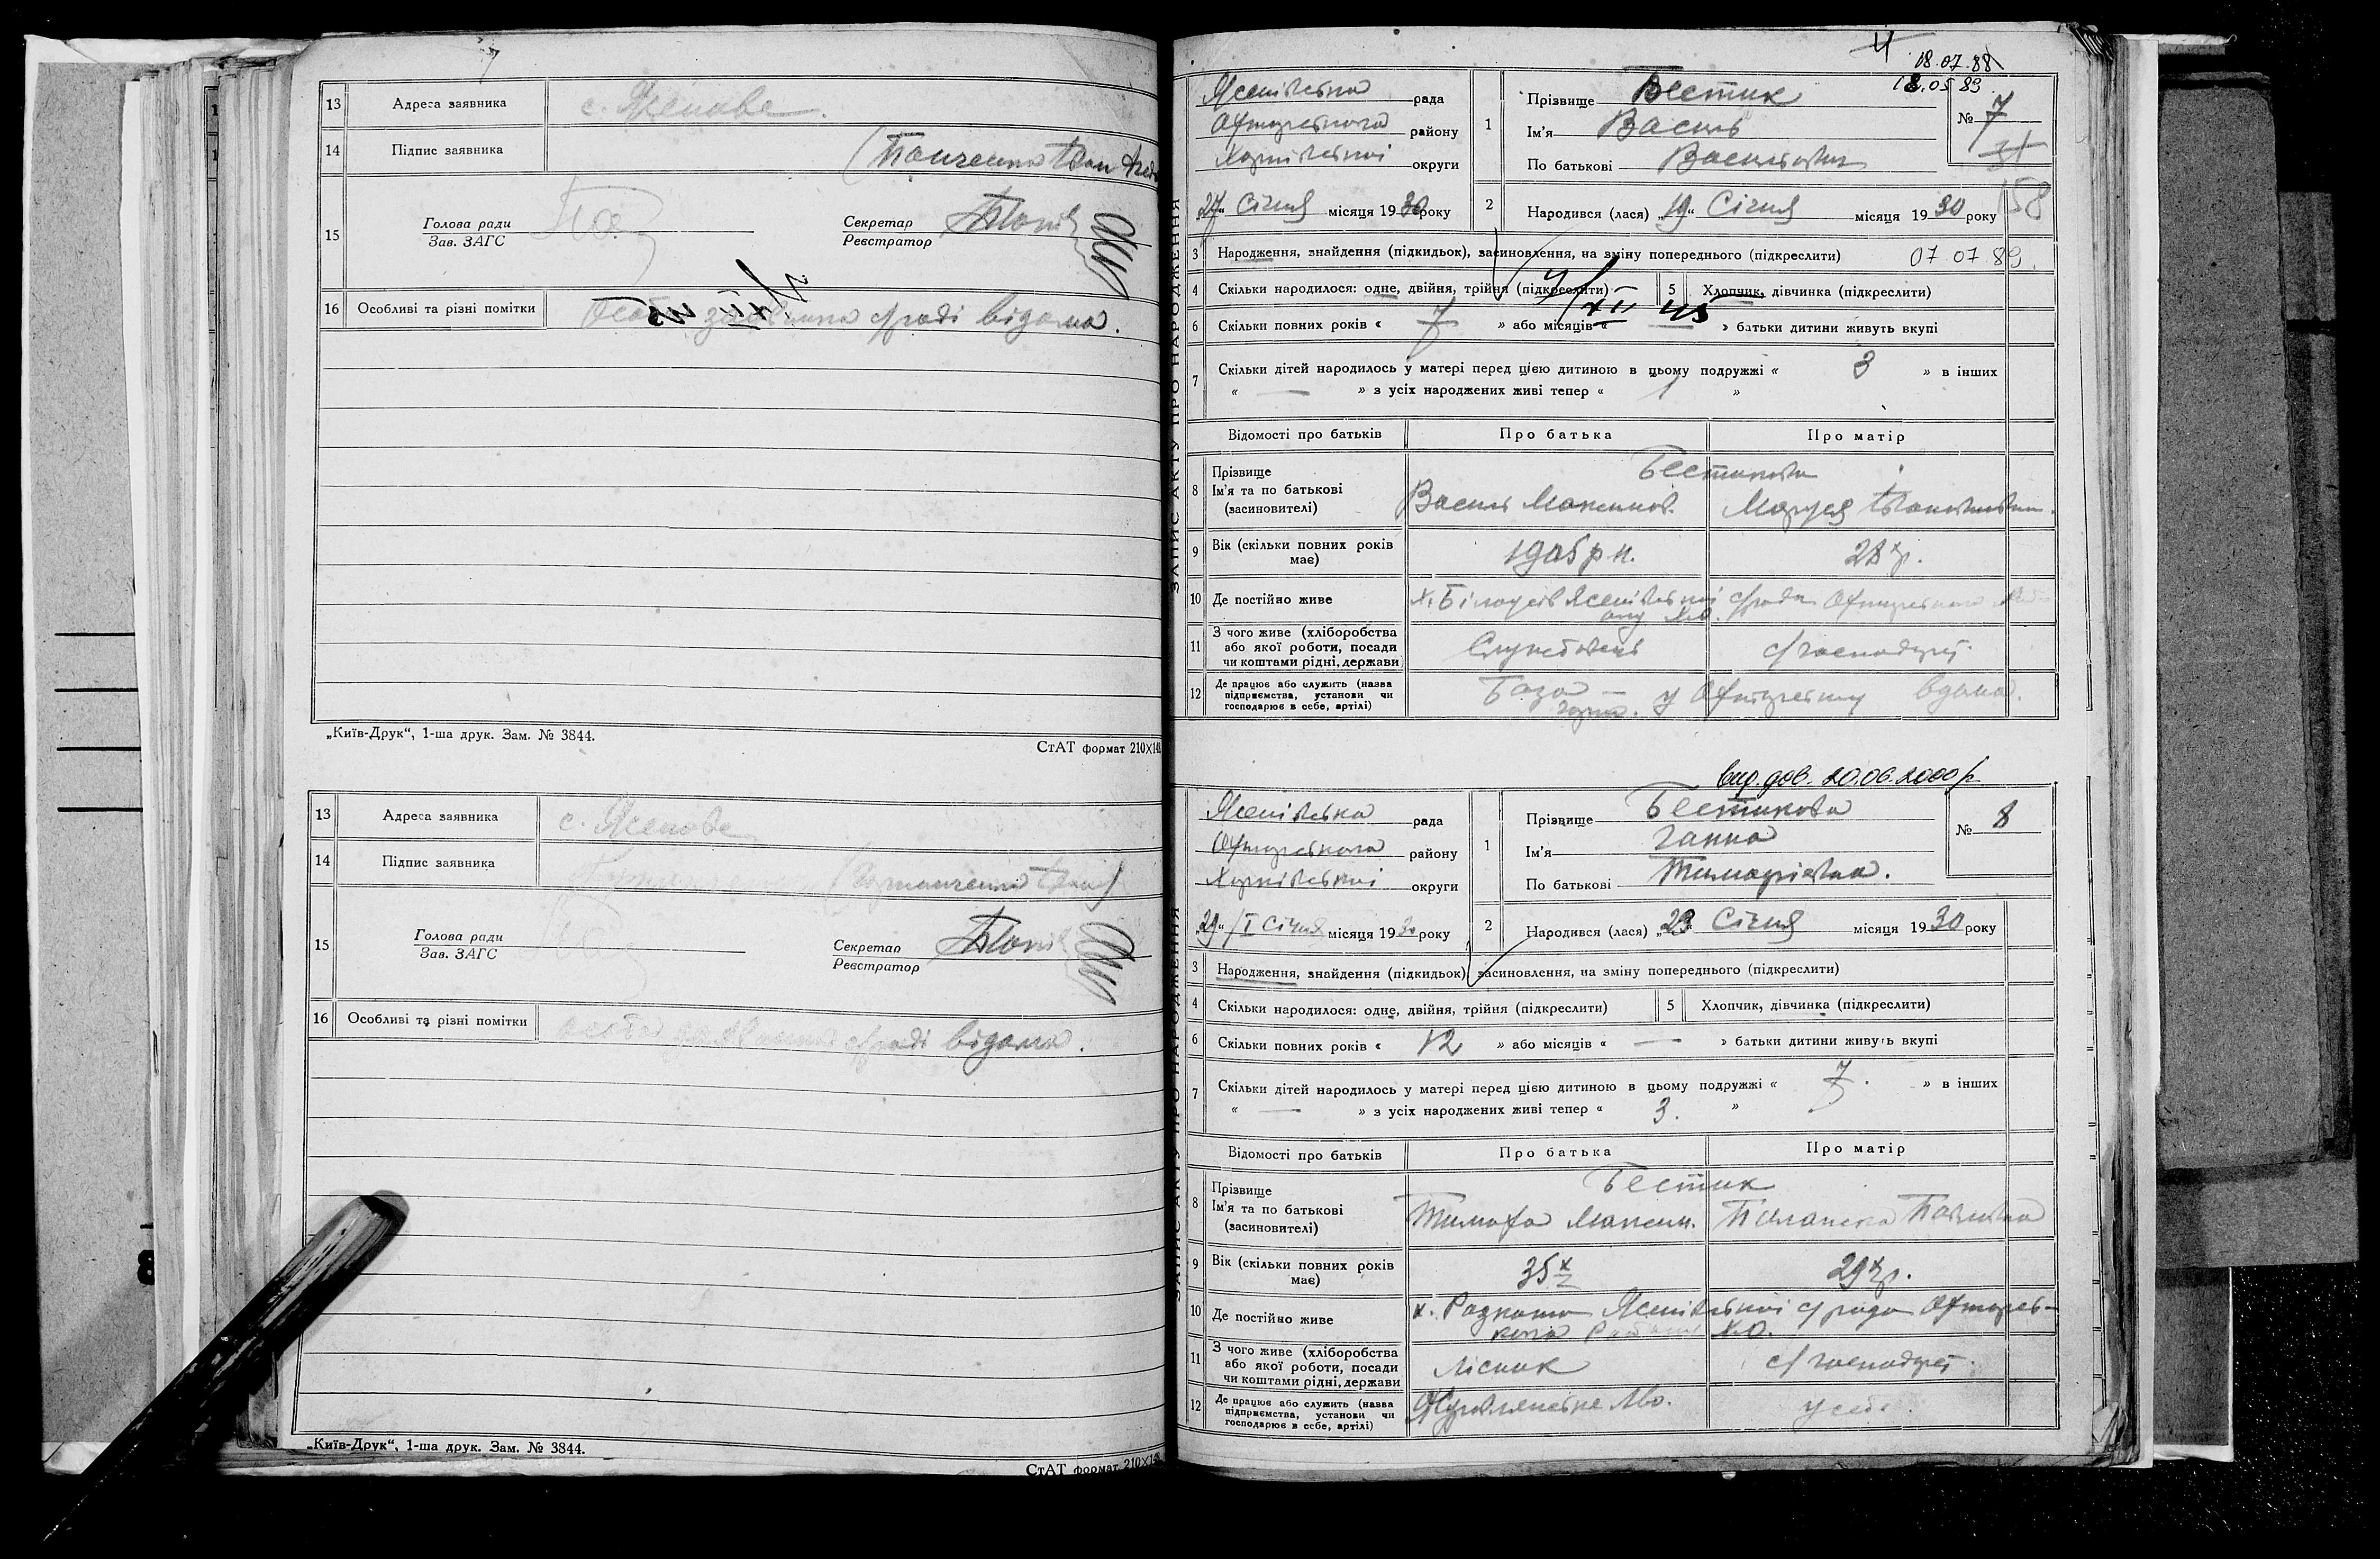 13 Адреса заявника с. Ясенове.
14 Підпис заявника
15 Голова ради
Зав. ЗАГС
Секретар
Реєстратор
16 Особливі та різні помітки Особа заявника с/раді відома.
„Київ-Друк“, 1-ша друк. Зам. № 3844.
СтАТ формат 210X148
13 Адреса заявника с. Ясенове
14 Підпис заявника
15 Голова ради
Зав. ЗАГС
Секретар
Реєстратор
16 Особливі та різні помітки особа заявника с/раді відома.
„Київ-Друк“, 1-ша друк. Зам. № 3844.
СтАТ формат 210X148
4
18.07.88
18.05.89
ЗАПИС АКТУ ПРО НАРОДЖЕННЯ
Ясенівська рада
Охтирського району
Харківської округи
„27“ Січня місяця 1930 року
1 Прізвище Бестик
Ім'я Василь
По батькові Васильович
№ 7
158
2 Народився (лася) „19“ Січня місяця 1930 року
3 Народження, знайдення (підкидьок), засиновлення, на зміну попереднього (підкреслити) 07.07.89.
4 Скільки народилося: одне, двійня, трійня (підкреслити) 5 Хлопчик, дівчинка (підкреслити)
4/XII 45
6 Скільки повних років « 7 » або місяців « — » батьки дитини живуть вкупі
7 Скільки дітей народилось у матері перед цією дитиною в цьому подружжі « 3 » в інших
« — » з усіх народжених живі тепер « 1 »
Відомості про батьків Про батька Про матір
8 Прізвище
Ім'я та по батькові
(засновителі)
Бестикови
Василь Максимов. Маруся Івановна.
9 Вік (скільки повних років має) 1905 р.н. 28 р.
10 Де постійно живе х. Ясенівської с/ради Охтирського
11 З чого живе (хліборобства
або якої роботи, посади
чи коштами рідні, держави)
Службовець с/господар.
12 Де працює або служить (назва
підприємства, установи чи
господарює в себе, артілі)
База — у Охтирському вдома.
вид. дов. 20.06.2000 р
ЗАПИС АКТУ ПРО НАРОДЖЕННЯ
Ясенівська рада
Охтирського району
Харківської округи
„29“ /I Січня місяця 1930 року
1 Прізвище Бестикова
Ім'я Ганна
По батькові Тимофіївна.
№ 8
2 Народився (лася) „23“ Січня місяця 1930 року
3 Народження, знайдення (підкидьок), засиновлення, на зміну попереднього (підкреслити)
4 Скільки народилося: одне, двійня, трійня (підкреслити) 5 Хлопчик, дівчинка (підкреслити)
6 Скільки повних років « 12 » або місяців « — » батьки дитини живуть вкупі
7 Скільки дітей народилось у матері перед цією дитиною в цьому подружжі « 7. » в інших
« — » з усіх народжених живі тепер « 3. »
Відомості про батьків Про батька Про матір
8 Прізвище
Ім'я та по батькові
(засиновителі)
Бестик
Тимофа Максим. Палажка Павлівна
9 Вік (скільки повних років має) 35 29 р.
10 Де постійно живе х. Ясенівської с/ради Охтирсь-
кого Х.О.
11 З чого живе (хліборобства
або якої роботи, посади
чи коштами рідні, держави
лісник с/господар.
12 Де працює або служить (назва
підприємства, установи чи
господарює в себе, артілі)
Журавлянське л-во. у себе.